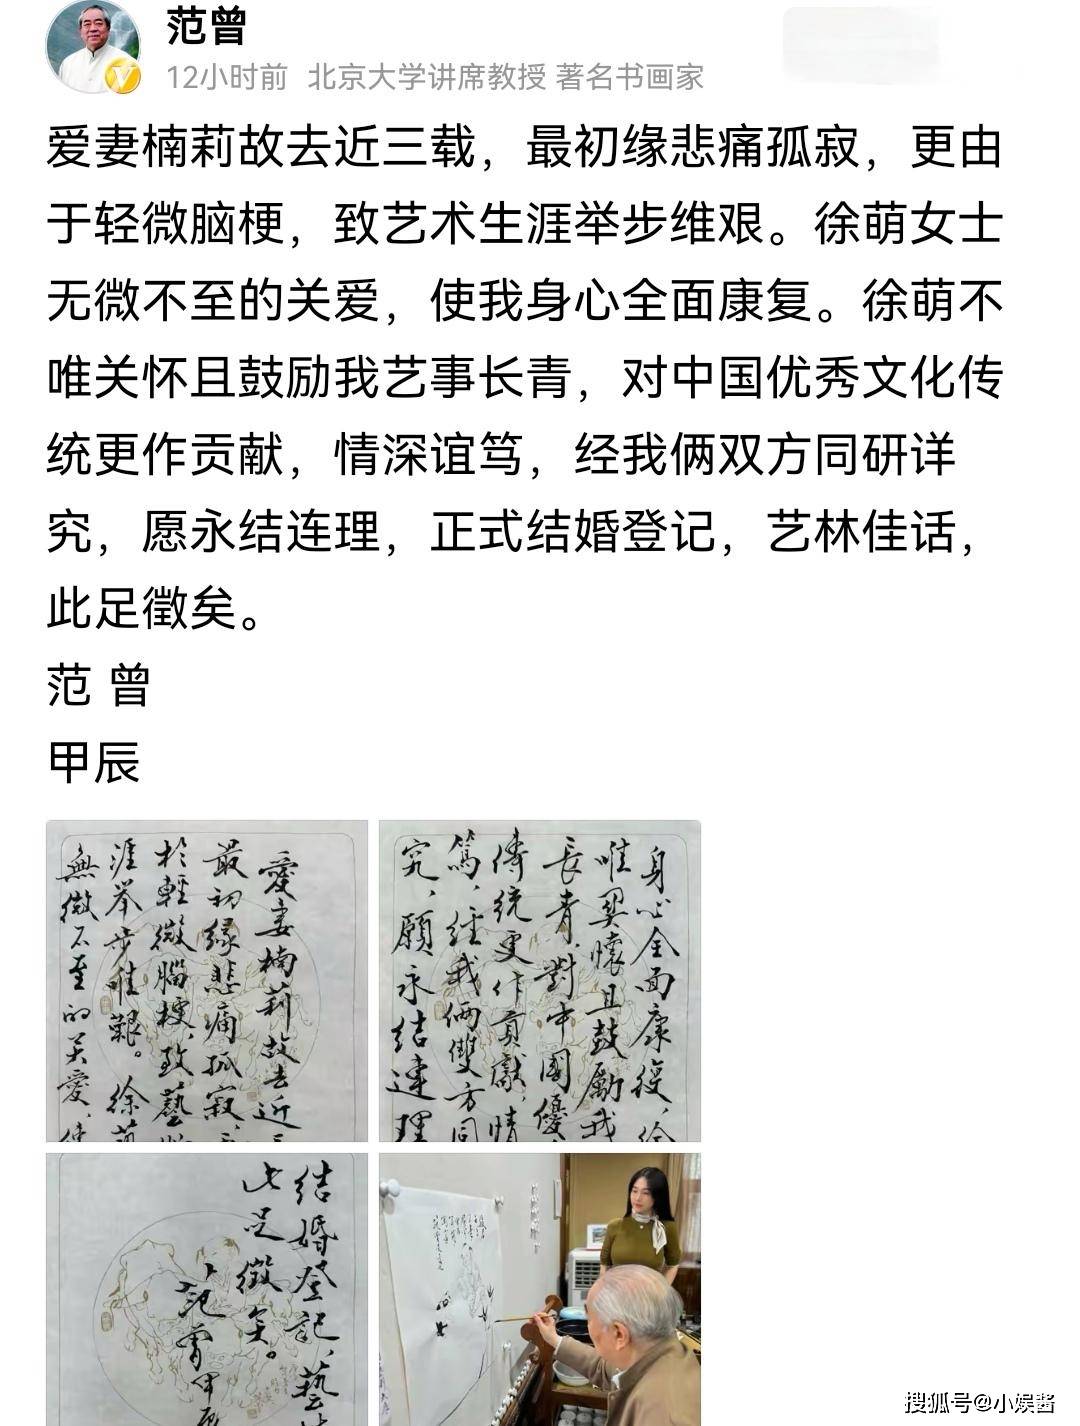 范曾
12小时前 北京大学讲席教授 著名书画家
爱妻楠莉故去近三载，最初缘悲痛孤寂，更由
于轻微脑梗，致艺术生涯举步维艰。徐萌女士
无微不至的关爱，使我身心全面康复。徐萌不
唯关怀且鼓励我艺事长青，对中国优秀文化传
统更作贡献，情深谊笃，经我俩双方同研详
究，愿永结连理，正式结婚登记，艺林佳话，
此足徵矣。
范 曾
甲辰
愛妻楠莉故去近
最初緣悲痛孤寂，
於輕微腦梗，致藝
涯举步維艱。徐
無微不至的关愛，使
身心全面康復，徐
唯関懷且鼓勵我
長青，對中國優
傳統更作貢獻，情
篤，經我俩雙方同
究，願永结連理
结婚登記，藝
此足徵矣。
范曾甲辰
搜狐号@小娱酱